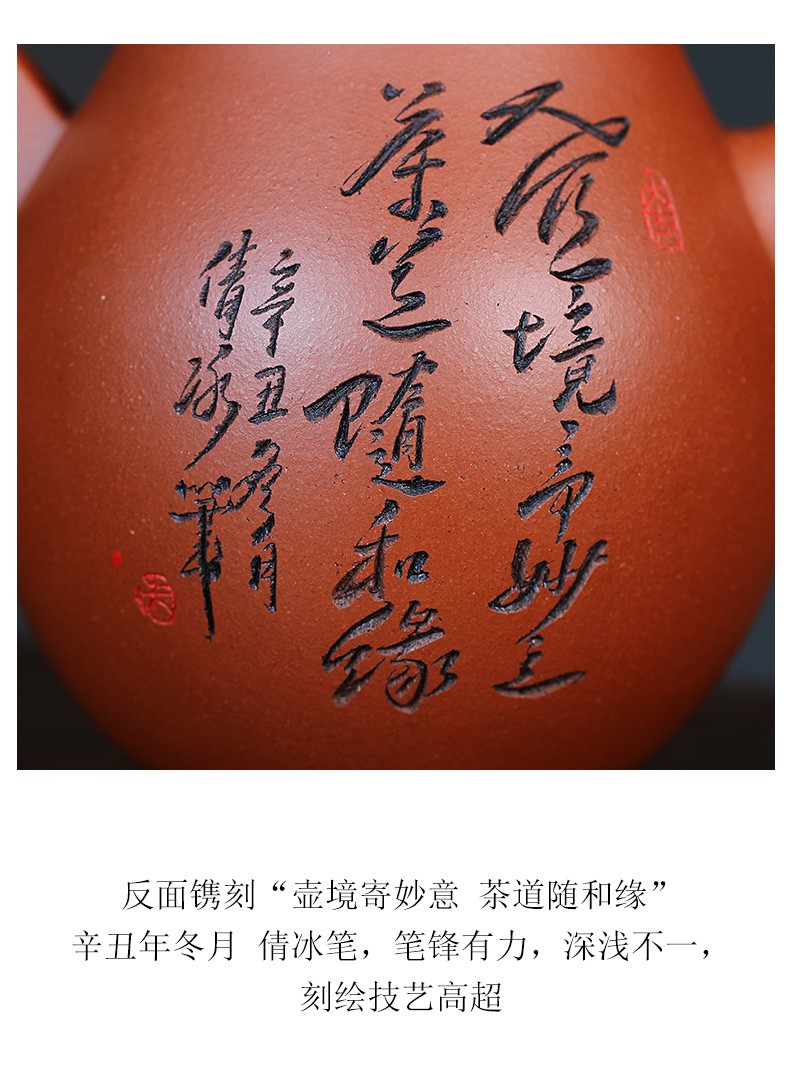 壺境寄妙意
茶道隨和緣
辛丑冬月
倩冰筆
反面镌刻“壶境寄妙意 茶道随和缘”
辛丑年冬月 倩冰笔，笔锋有力，深浅不一，
刻绘技艺高超